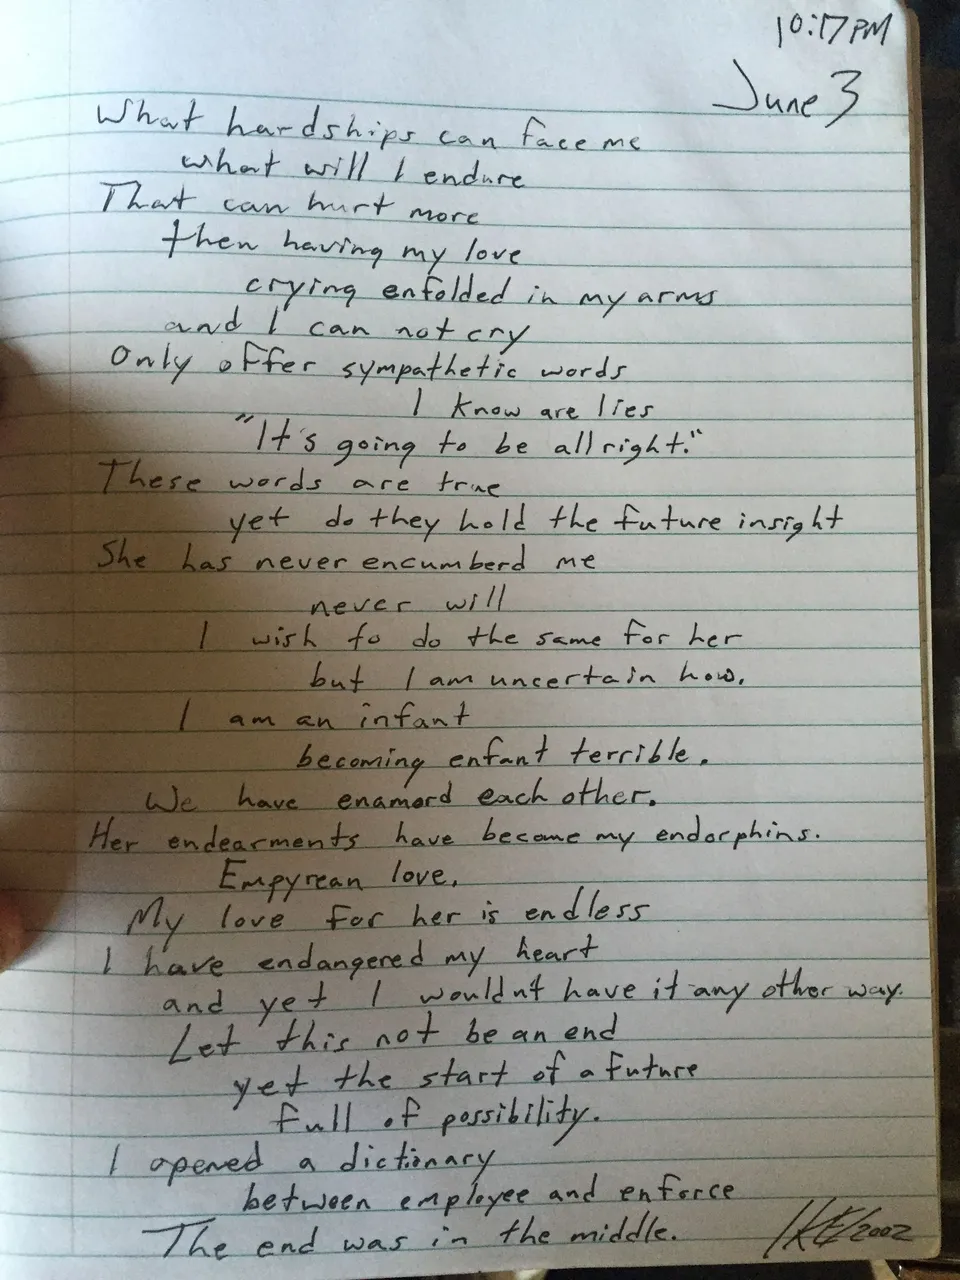 10:17PM
June 3
What hardships can face me
what will I endure
That can hurt more
then having my love
crying enfolded in my arms
and I can not cry
Only offer sympathetic words
I know are lies
"It's going to be all right."
These words are true
yet do they hold the future insight
She has never encumberd me
never will
I wish to do the same for her
but I am uncertain how.
I am an infant
becoming enfant terrible.
We have enamord each other.
Her endearments have become my endorphins.
Empyrean love.
My love for her is endless
I have endangered my heart
and yet I wouldnt have it any other way.
Let this not be an end
yet the start of a future
full of possibility.
I opened a dictionary
between employee and enforce
The end was in the middle.
2002